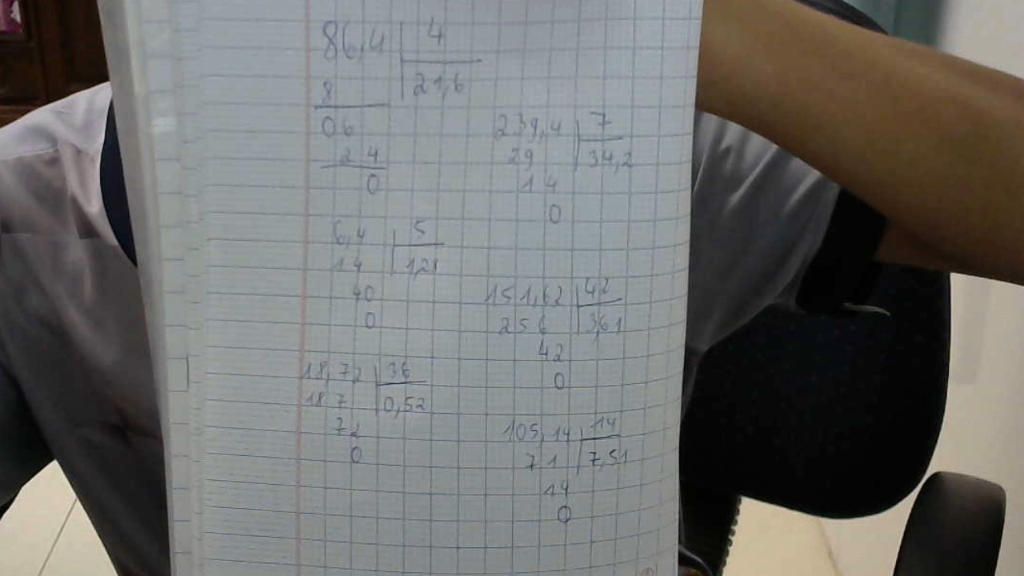 86,4 4
8 21,6
06
24
0
239,4 7
29 34,2
14
0
6,4 5
14 1,28
40
0
151,62 42
256 3,61
42
0
18,72 36
18 7 0,52
72
0
105,14 14
7 1 7,51
14
0